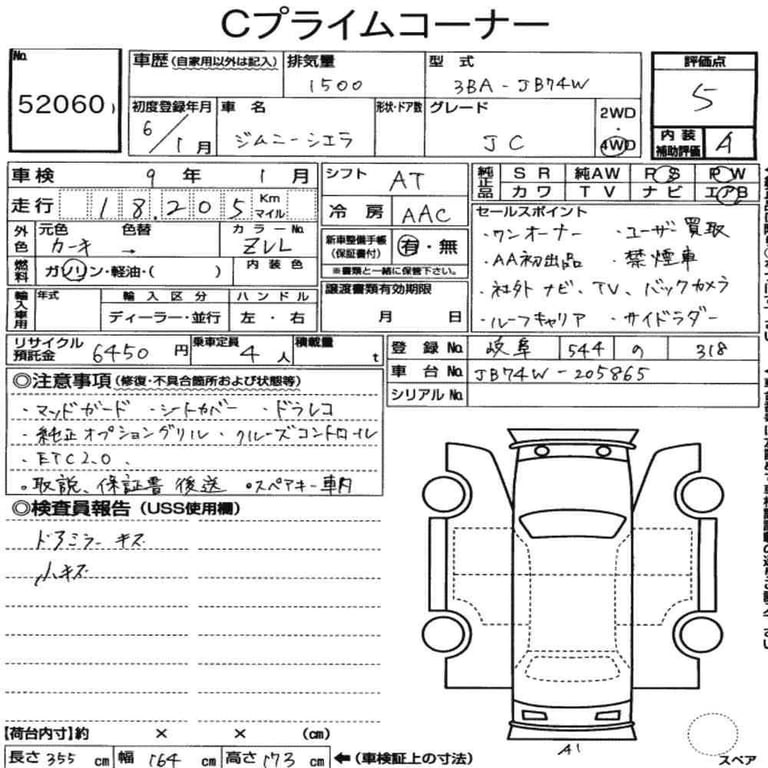 Cプライムコーナー
No.
52060
車歴(自家用以外は記入)
排気量
1500
型 式
3BA-JB74W
評価点
5
初度登録年月
6/1月
車 名
ジムニーシエラ
形状・ドア数
グレード
JC
2WD
・
4WD
内 装
補助評価
A
車 検 9 年 1 月
シフト
AT
純正品
S R
純AW
P S
P W
カ ワ
T V
ナ ビ
エアB
走 行 18,205
Km
マイル
冷 房
AAC
外色
元色
カーキ
色替
→
カラーNo.
ZVL
新車整備手帳
(保証書付)
有・無
※書類と一緒に保管下さい。
燃料
ガソリン・軽油・( )
内 装 色
セールスポイント
・ワンオーナー ・ユーザー買取
・AA初出品 ・禁煙車
・社外ナビ、TV、バックカメラ
・ルーフキャリア ・サイドラダー
輸入車用
年式
輸 入 区 分
ハ ン ド ル
ディーラー・並行
左 ・ 右
譲渡書類有効期限
月 日
リサイクル
預託金
6450 円
乗車定員
4 人
積載量
t
登 録 No.
岐阜 544 の 318
車 台 No.
JB74W-205865
シリアルNo.
◎注意事項(修復・不具合箇所および状態等)
・マッドガード ・シートカバー ・ドラレコ
・純正オプショングリル ・クルーズコントロール
・ETC2.0
・取説、保証書 後送 ◦スペアキー車内
◎検査員報告(USS使用欄)
ドアミラーキズ
小キズ
A1
【荷台内寸】約 × × (cm)
長さ 355 cm 幅 164 cm 高さ 173 cm ←(車検証上の寸法)
スペア